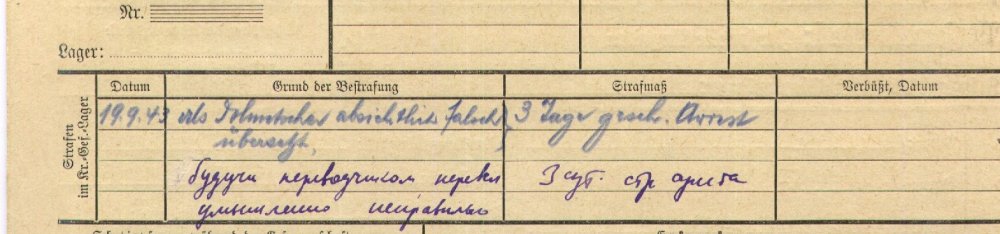 Nr.
Lager:
Datum Grund der Bestrafung Strafmaß Verbüßt, Datum
Strafen
im Kr.-Gef.-Lager
19.9.43 als Dolmetscher absichtlich falsch 3 Tage gesch. Arrest
übersetzt,
будучи переводчиком перевел 3 сут. стр ареста
умышленно неправильно